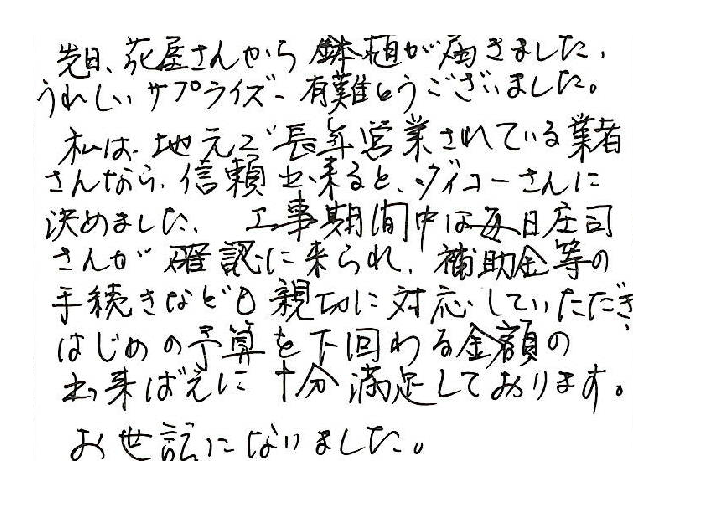 先日、花屋さんから 鉢植が届きました、
うれしいサプライズ- 有難とうございました。
私は、地元で長年営業されている業者
さんなら、信頼出来ると、ダイコーさんに
決めました、工事期間中は毎日庄司
さんが確認に来られ、補助金等の
手続きなども親切に対応していただき、
はじめの予算を下回わる金額の
出来ばえに十分満足しております。
お世話になりました。